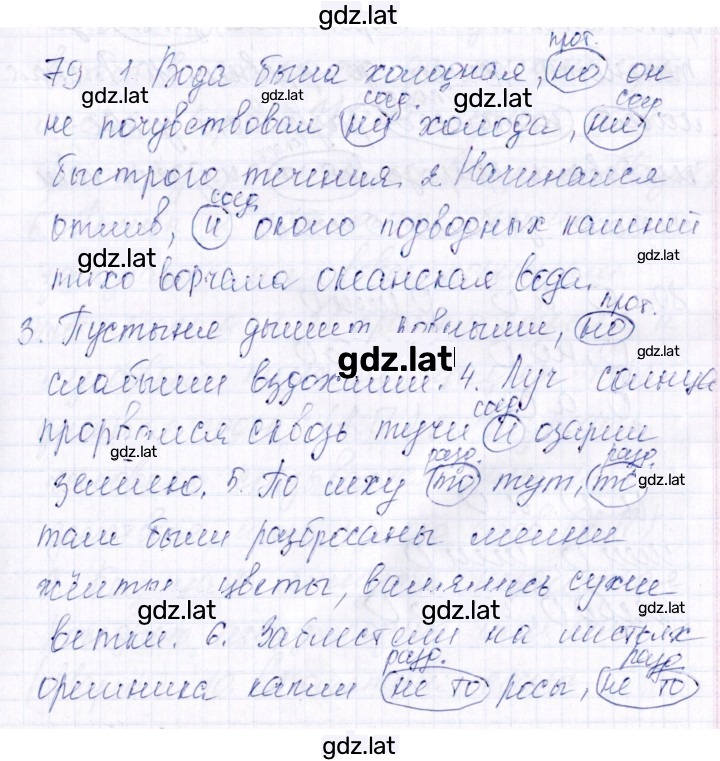 gdz.lat
прот.
79 1. Вода была холодная, но он
gdz.lat gdz.lat gdz.lat
соед. соед.
не почувствовал ни холода, ни
быстрого течения. 2. Начинался
соед.
отлив, и около подводных камней
gdz.lat gdz.lat
тихо ворчала океанская вода.
прот.
3. Пустыня дышит ровными, но
gdz.lat gdz.lat
слабыми вздохами. 4. Луч солнца
соед.
прорвался сквозь тучи и озарил
gdz.lat
разд. разд.
землю. 5. По меху то тут, то
gdz.lat
там были разбросаны мелкие
жёлтые цветы, валялись сухие
gdz.lat gdz.lat gdz.lat
ветки. 6. Заблестели на листьях
разд. разд.
орешника капли не то росы, не то
gdz.lat
gdz.lat